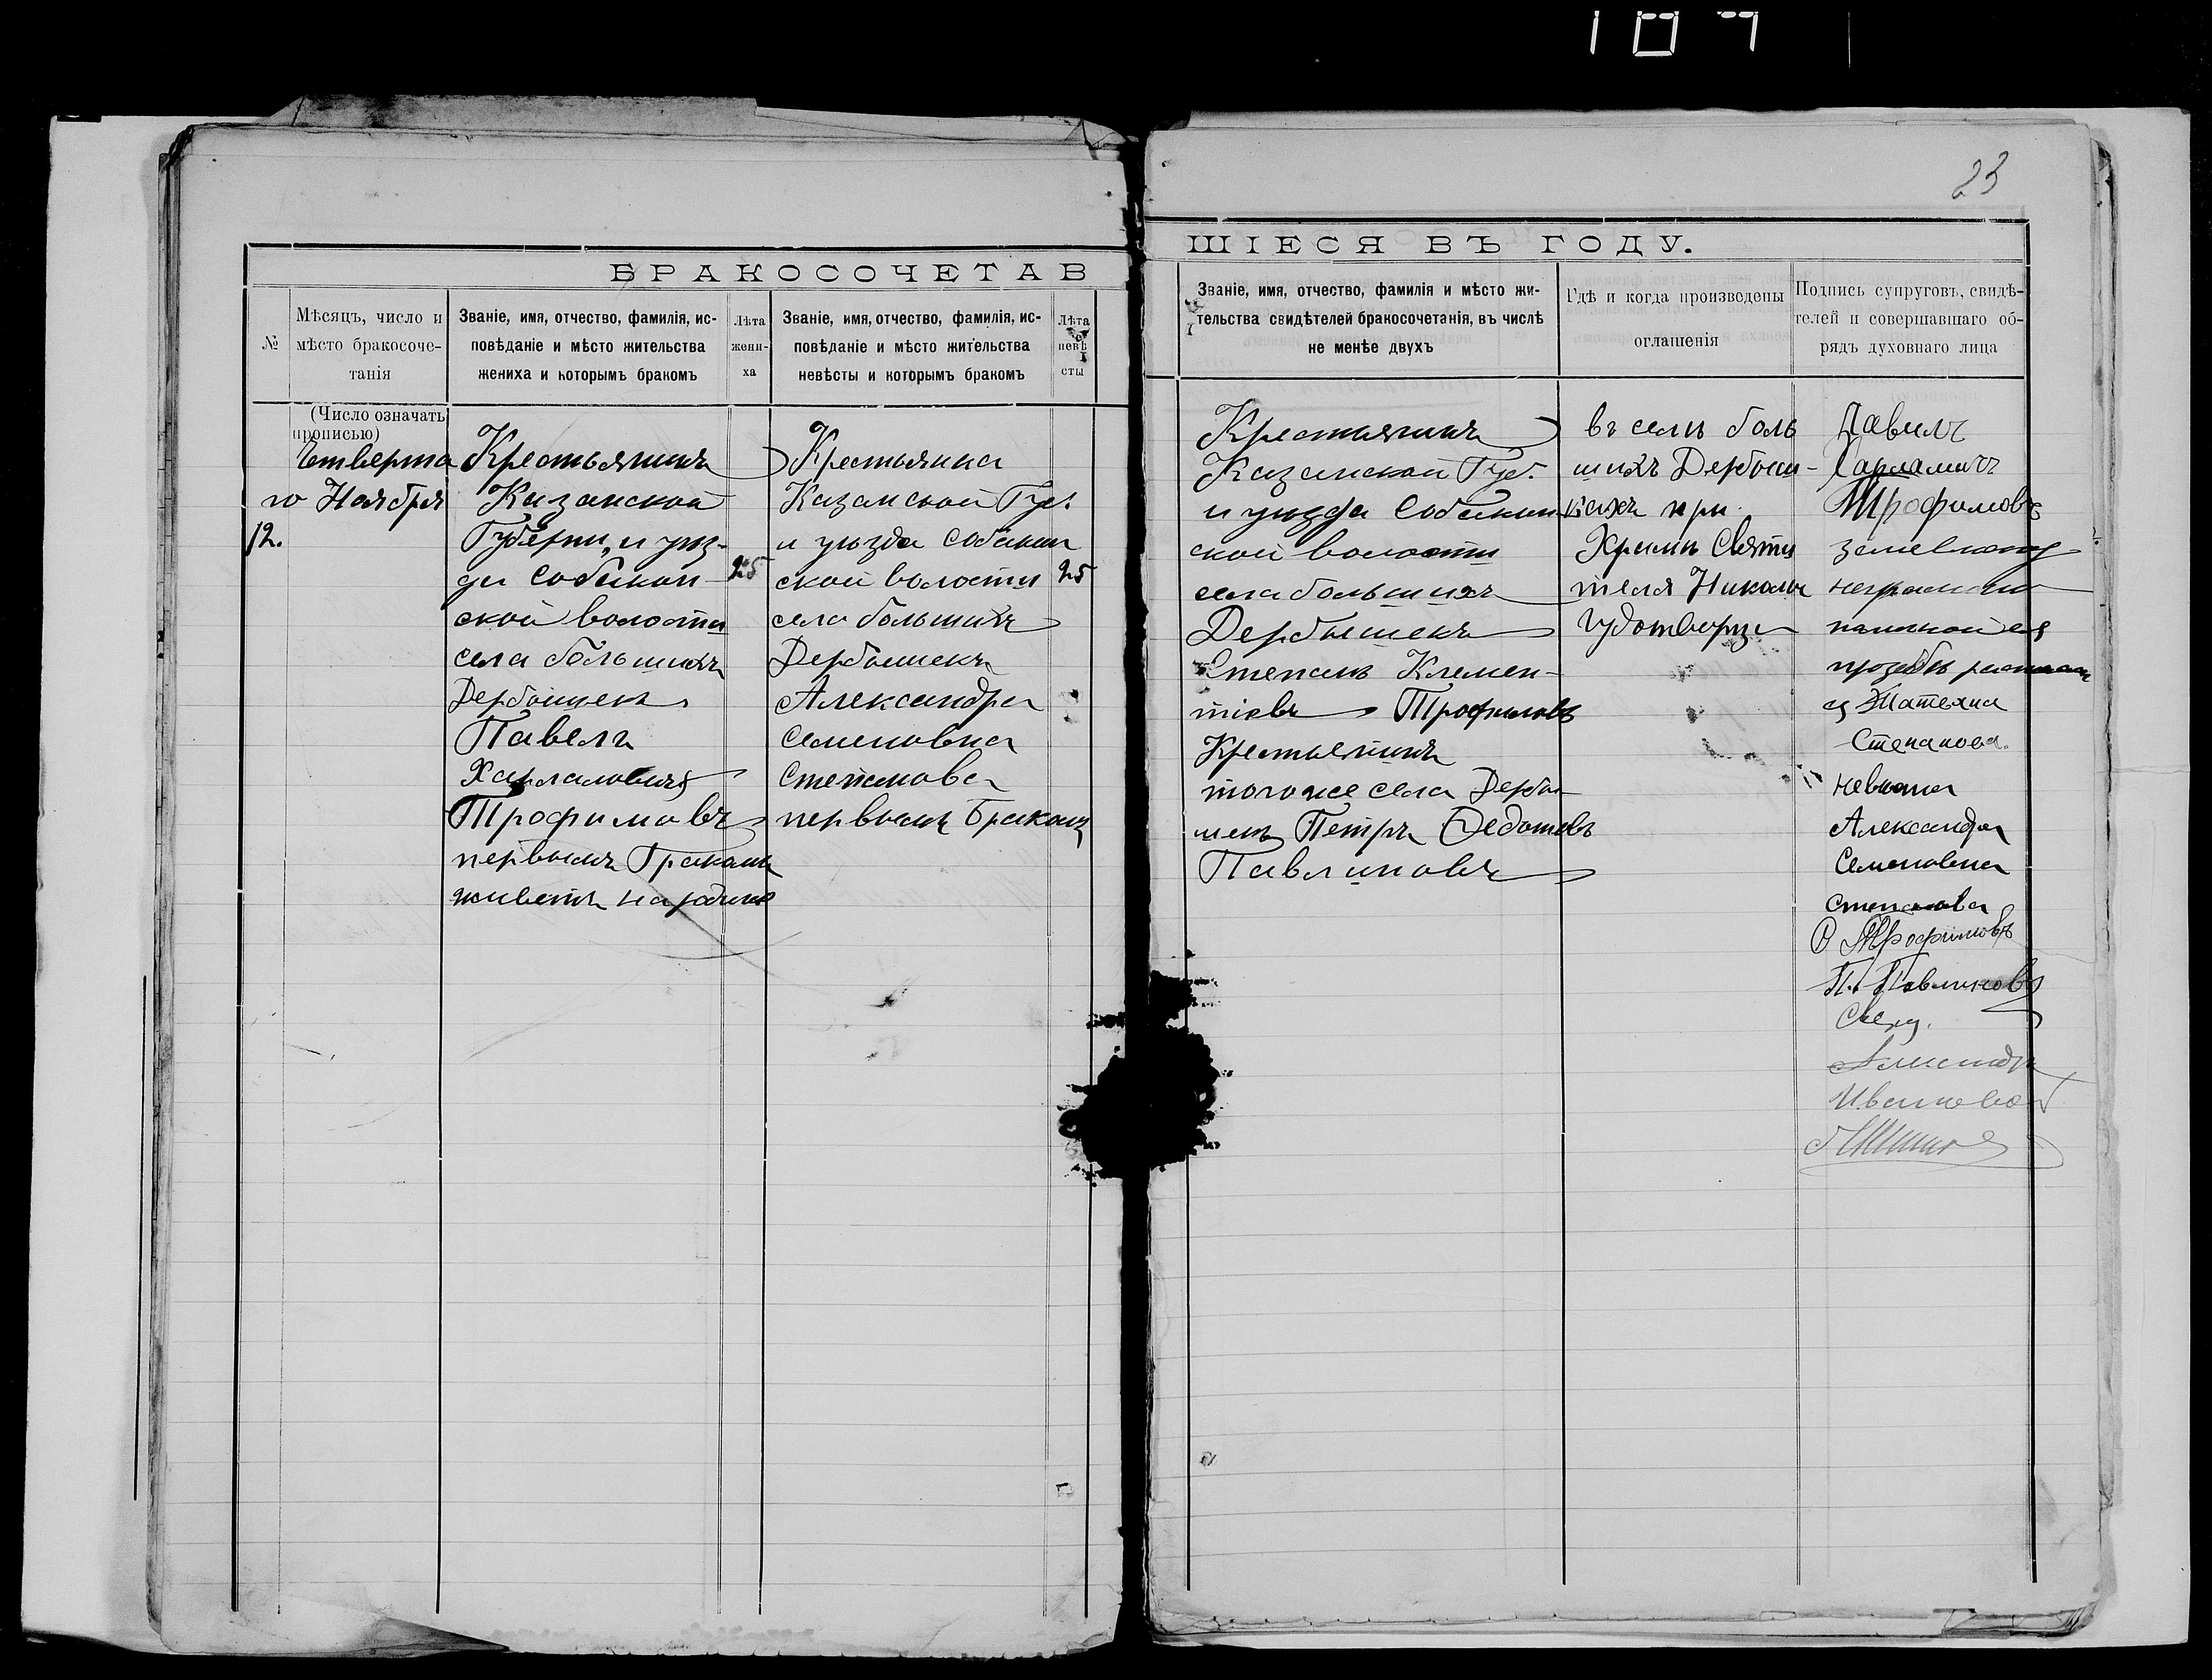 23
БРАКОСОЧЕТАВ
ШІЕСЯ ВЪ ГОДУ.
№
Мѣсяцъ, число и
мѣсто бракосоче-
танія
Званіе, имя, отчество, фамилія, ис-
повѣданіе и мѣсто жительства
жениха и которымъ бракомъ
Лѣта
жени-
ха
Званіе, имя, отчество, фамилія, ис-
повѣданіе и мѣсто жительства
невѣсты и которымъ бракомъ
Лѣта
невѣ
сты
Званіе, имя, отчество, фамилія и мѣсто жи-
тельства свидѣтелей бракосочетанія, въ числѣ
не менѣе двухъ
Гдѣ и когда произведены
оглашенія
Подпись супруговъ, свидѣ-
телей и совершавшаго об-
рядъ духовнаго лица
(Число означать
прописью)
Четверта
го Ноября
12.
Крестьянинъ
Казанской
Губерніи, и уѣз-
да Собакин-
ской волости
села большихъ
Дербышекъ
Павелъ
Харламовичъ
Трофимовъ
первымъ Бракомъ
живетъ народинѣ
25
Крестьянка
Казанской Губ.
и уѣзда Собакин
ской волости
села большихъ
Дербышекъ
Александра
Семеновна
Степанова
первымъ Бракомъ
25
Крестьянинъ
Казанской Губ.
и уѣзда Собакин-
ской волости
села большихъ
Дербышекъ
Степанъ Клемен-
тіевъ Трофимовъ
Крестьянинъ
тогоже села Дербы-
шекъ Петръ Федотовъ
Павлиновъ
въ селѣ боль
шихъ Дербыш-
кахъ при
Храмѣ Святи
теля Николы
Чудотворца
Павелъ
Харламычъ
Трофимовъ
прозьбѣ
Татеяна
Степанова.
невѣста
Александра
Семеновна
Степанова
Трофимовъ
П. Павлиновъ
Свящ.
Александръ